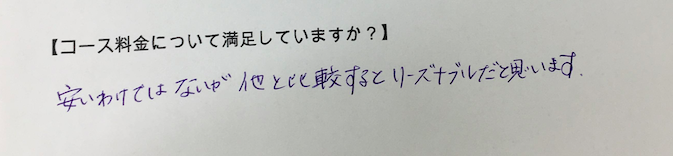 【コース料金について満足していますか？】
安いわけではないが 他と比較するとリーズナブルだと思います.